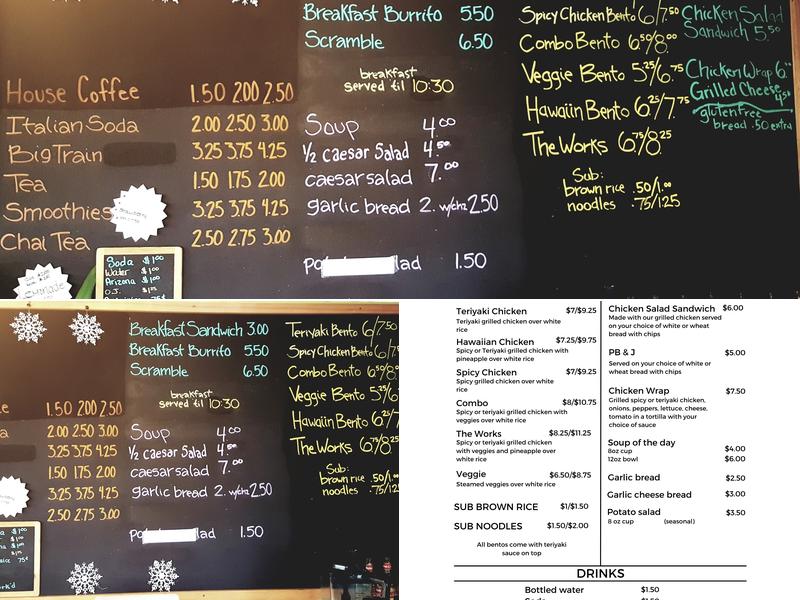 House Coffee 1.50 2.00 2.50
Italian Soda 2.00 2.50 3.00
Big Train 3.25 3.75 4.25
Tea 1.50 1.75 2.00
Smoothies 3.25 3.75 4.25
Chai Tea 2.50 2.75 3.00
Soda $1.00
Water $1.00
Arizona $1.00
O.J.
Breakfast Burrito 5.50
Scramble 6.50
breakfast
served til 10:30
Soup 4.00
1/2 caesar salad 4.50
caesar salad 7.00
garlic bread 2. w/chz 2.50
lad 1.50
Spicy Chicken Bento 6/7.50
Combo Bento 6.50/8.00
Veggie Bento 5.25/6.75
Hawaiin Bento 6.25/7.75
The Works 6.75/8.25
Sub:
brown rice .50/1.00
noodles .75/1.25
Chicken Salad
Sandwich 5.50
Chicken Wrap 6.
Grilled Cheese 4.50
gluten free
bread .50 extra
1.50 2.00 2.50
2.00 2.50 3.00
3.25 3.75 4.25
1.50 1.75 2.00
3.25 3.75 4.25
2.50 2.75 3.00
Breakfast Sandwich 3.00
Breakfast Burrito 5.50
Scramble 6.50
breakfast
served til 10:30
Soup 4.00
1/2 caesar salad 4.50
caesar salad 7.00
garlic bread 2. w/chz 2.50
lad 1.50
Teriyaki Bento 6/7.50
Spicy Chicken Bento 6/7.
Combo Bento 6.50/8.
Veggie Bento 5.25/6
Hawaiin Bento 6.25/7
The Works 6.75/8.25
Sub:
brown rice .50/1.
noodles .75/1.2
Teriyaki Chicken $7/$9.25
Teriyaki grilled chicken over white
rice
Hawaiian Chicken $7.25/$9.75
Spicy or Teriyaki grilled chicken with
pineapple over white rice
Spicy Chicken $7/$9.25
Spicy grilled chicken over white
rice
Combo $8/$10.75
Spicy or teriyaki grilled chicken with
veggies over white rice
The Works $8.25/$11.25
Spicy or teriyaki grilled chicken
with veggies and pineapple over
white rice
Veggie $6.50/$8.75
Steamed veggies over white rice
SUB BROWN RICE $1/$1.50
SUB NOODLES $1.50/$2.00
All bentos come with teriyaki
sauce on top
Chicken Salad Sandwich $6.00
Made with our grilled chicken served
on your choice of white or wheat
bread with chips
PB & J $5.00
Served on your choice of white or
wheat bread with chips
Chicken Wrap $7.50
Grilled spicy or teriyaki chicken,
onions, peppers, lettuce, cheese,
tomato in a tortilla with your
choice of sauce
Soup of the day
8oz cup $4.00
12oz bowl $6.00
Garlic bread $2.50
Garlic cheese bread $3.00
Potato salad $3.50
8 oz cup (seasonal)
DRINKS
Bottled water $1.50